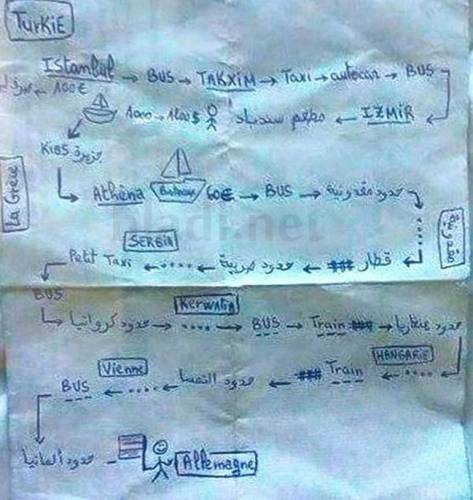 TURKIE
Istanbul → BUS → TAKXIM → Taxi → autocar → BUS
100€
1000 → 1200$ مطعم سندباد ← IZMIR
KIOS جزيرة
La Grece
Athèna Bateau 60€ → BUS → حدود مقدونية
bladi.net
SERBIA
Petit Taxi ← .... ← حدود صربية ← قطار
BUS
KerwATIA
حدود كرواتيا → .... → BUS → Train → حدود هنغاريا
HANGARIE
Vienne
BUS ← .... ← حدود النمسا ← Train ← ....
حدود ألمانيا
Allemagne